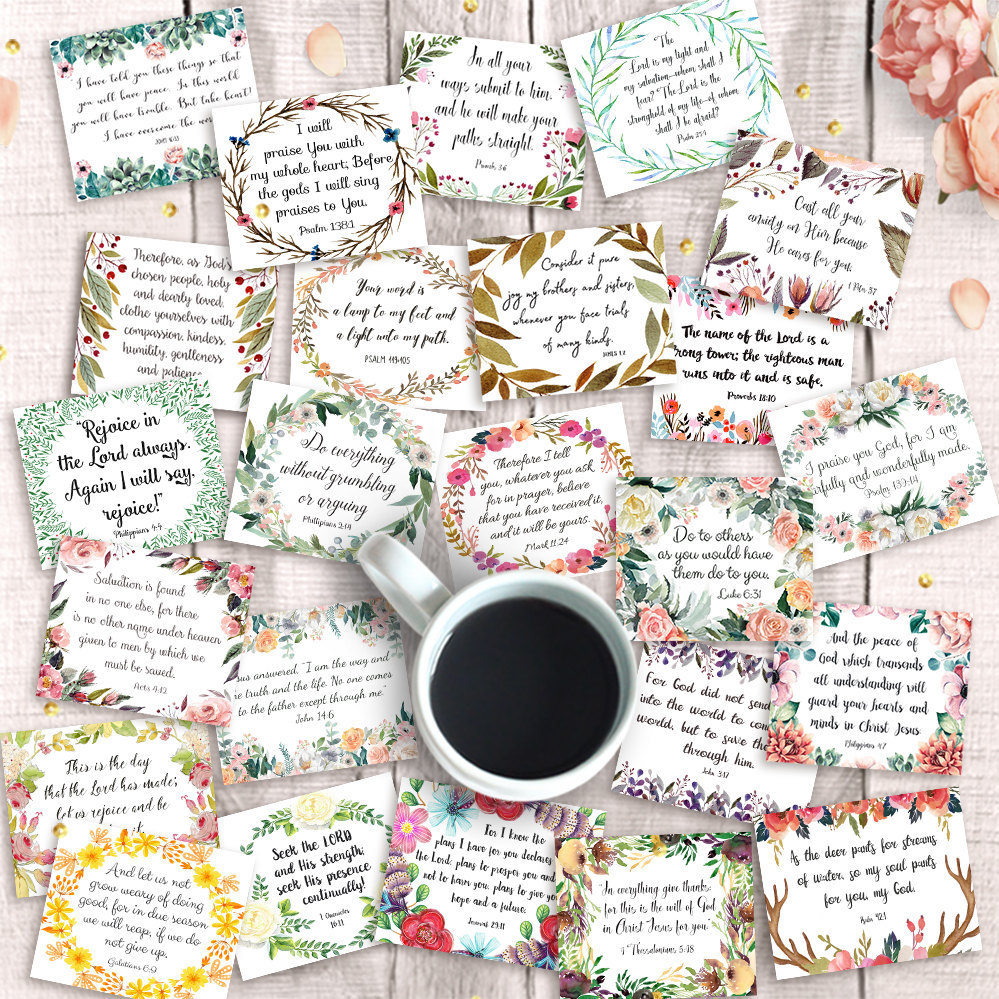 I have told you these things so that
you will have peace. In this world
you will have trouble. But take heart!
I have overcome the
JOHN 16:33
I will
praise You with
my whole heart; Before
the gods I will sing
praises to You.
Psalm 138:1
In all your
ways submit to him,
and he will make your
paths straight.
Proverbs 3:6
The
Lord is my light and
my salvation-whom shall I
fear? The Lord is the
stronghold of my life-of whom
shall I be afraid?
Psalm 27:1
Cast all your
anxiety on Him because
He cares for you.
Therefore, as God's
chosen people, holy
and dearly loved,
clothe yourselves with
compassion, kindess,
humility, gentleness
and patience
Your word is
a lamp to my feet and
a light unto my path.
PSALM 119:105
Consider it pure
joy my brothers and sisters,
whenever you face trials
of many kinds.
JAMES 1:2
The name of the Lord is a
rong tower; the righteous man
runs into it and is safe.
Proverbs 18:10
"Rejoice in
the Lord always.
Again I will say,
rejoice!"
Philippians 4:4
Do everything
without grumbling
or arguing
Philippians 2:14
Therefore I tell
you, whatever you ask
for in prayer, believe
that you have received it,
and it will be yours.
Mark 11:24
I praise you God, for I am
rfully and wonderfully made.
Psalm 139:14
Do to others
as you would have
them do to you.
Luke 6:31
Salvation is found
in no one else, for there
is no other name under heaven
given to men by which we
must be saved.
Acts 4:12
us answered, "I am the way and
e truth and the life. No one comes
to the father except through me"
John 14:6
For God did not send
into the world to con
world, but to save the
through him.
John 3:17
And the peace of
God which transcends
all understanding will
guard your hearts and
minds in Christ Jesus.
Philippians 4:7
This is the day
that the Lord has made;
let us rejoice and be
And let us not
grow weary of doing
good, for in due season
we will reap, if we do
not give up.
Galatians 6:9
Seek the LORD
and His strength;
seek His presence
continually!
1 Chronicles
16:11
For I know the
plans I have for you declares
the Lord, plans to prosper you and
not to harm you, plans to give you
hope and a future.
Jeremiah 29:11
In everything give thanks,
for this is the will of God
in Christ Jesus for you.
1 Thessalonians 5:18
As the deer pants for streams
of water, so my soul pants
for you, my God.
Psalm 42:1